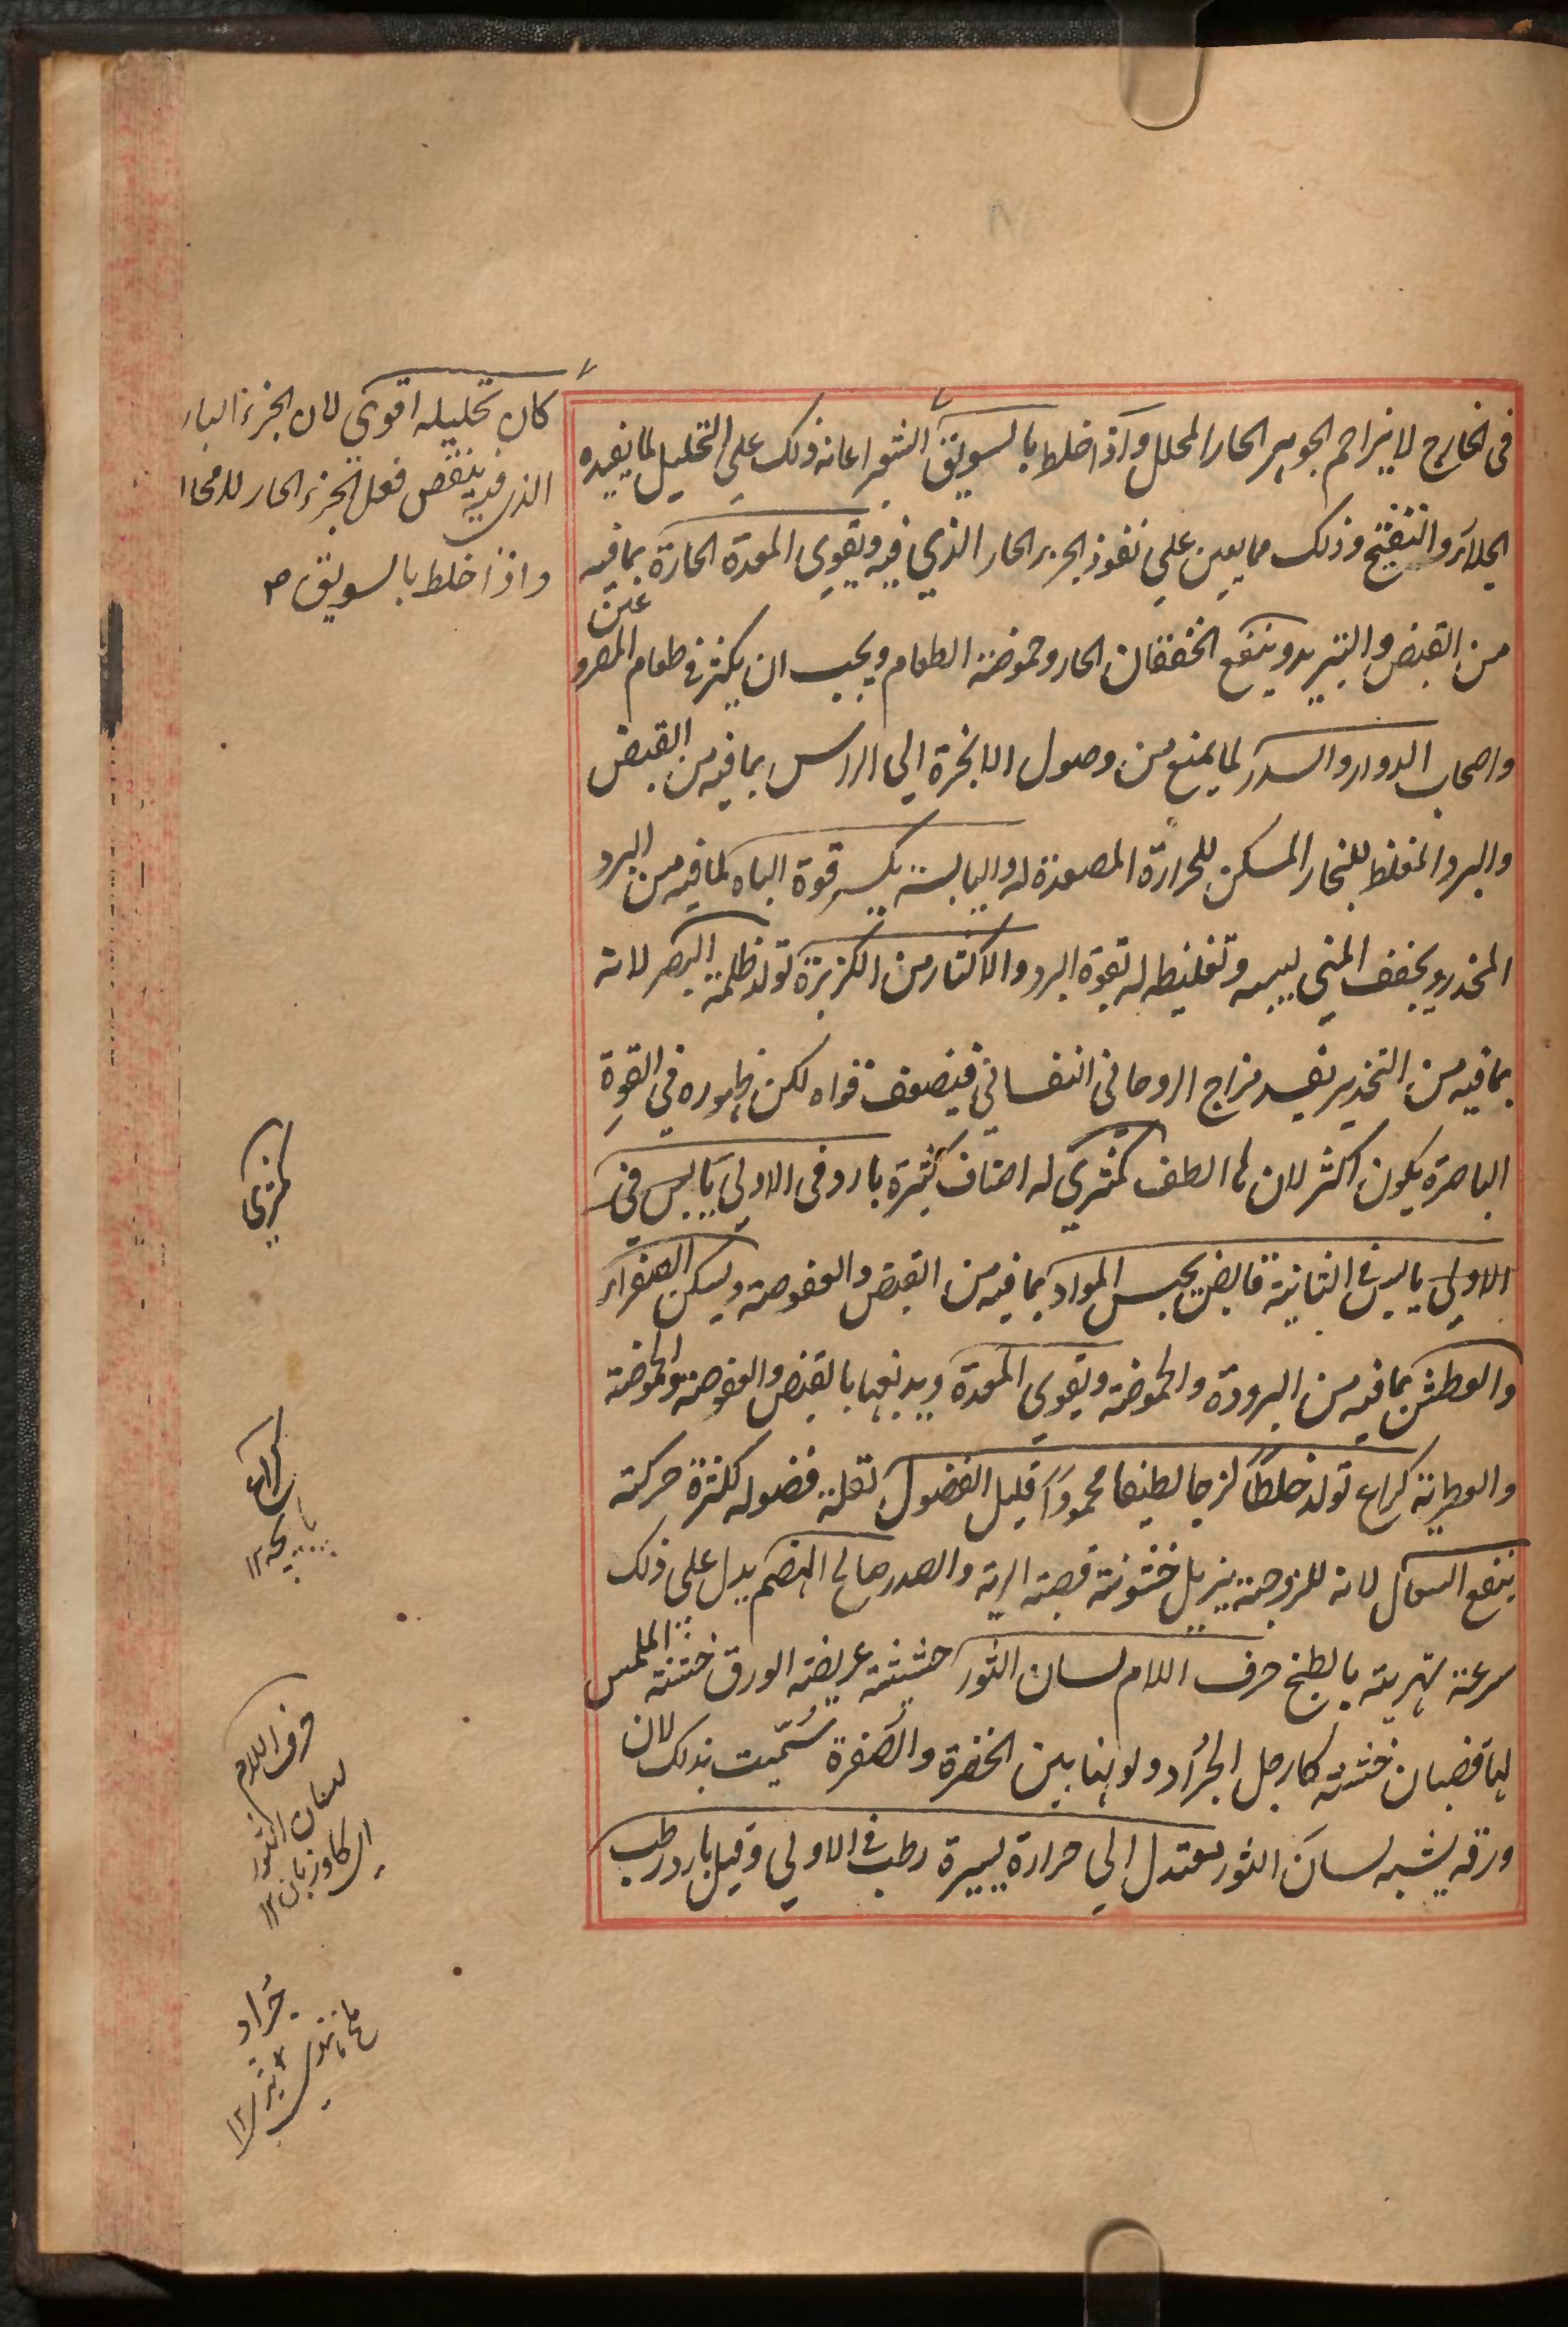 في الخارج لا يزاحم الجوهر الحار المحلل واذا خلط بالسويق الشعير اعانه ذلك على التحليل لما يفيده
الجلاء والتفتيح وذلك مما يعين على نفوذ الجزء الحار الذي فيه ويقوى المعدة الحارة بما فيه
من القبض والتبريد وينفع الخفقان الحار وحموضة الطعام ويجب ان يكثر في طعام المصرو
عين
واصحاب الدوار والسدر لما يمنع من وصول الابخرة الي الراس بما فيه من القبض
والبرد المغلظ للبخار المسكن للحرارة المصعدة له واليابسة يكسر قوة الباه لما فيه من البرد
المخدر ويجفف المني ليبسه وتغليظه له بقوة البرد والاكثار من الكزبرة تولد ظلمة البصر لانه
بما فيه من التخدير يفسد مزاج الروحاني النفساني فيضعف قواه لكن ظهوره في القوة
الباصرة يكون اكثر لان الطف كمثري له اصناف كثيرة بارد في الاولي يابس في
الاولي يابس في الثانية قابض يحبس المواد بما فيه من القبض والعفوصة ويسكن الصفراء
والعطش بما فيه من البرودة والحموضة ويقوي المعدة ويدبغها بالقبض والعفوصة والحموضة
والعطرية كراع تولد خلطا لزجا لطيفا محمودا قليل الفضول لقلة فضوله لكثرة حركته
ينفع السعال لانه للزوجته يزيل خشونة قصبة الرية والصدر صالح الهضم يدل على ذلك
سرعة تهريته بالطبخ حرف اللام لسان الثور حشيشة عريضة الورق خشنة الملمس
لها قضبان خشنة كارجل الجراد ولونها بين الخضرة والصفرة سميت بذلك لان
ورقه يشبه لسان الثور معتدل الي حرارة يسيرة رطب في الاولي وقيل بارد رطب
كان تحليله اقوي لان الجزء البار
الذي فيه ينقص فعل الجزء الحار للامحا
واذا خلط بالسويق ص
كمثري
كراع
پايچه ۱۲
حرف اللام
لسان الثور
اى كاوزبان ۱۲
جراد
ملخ
۱۲